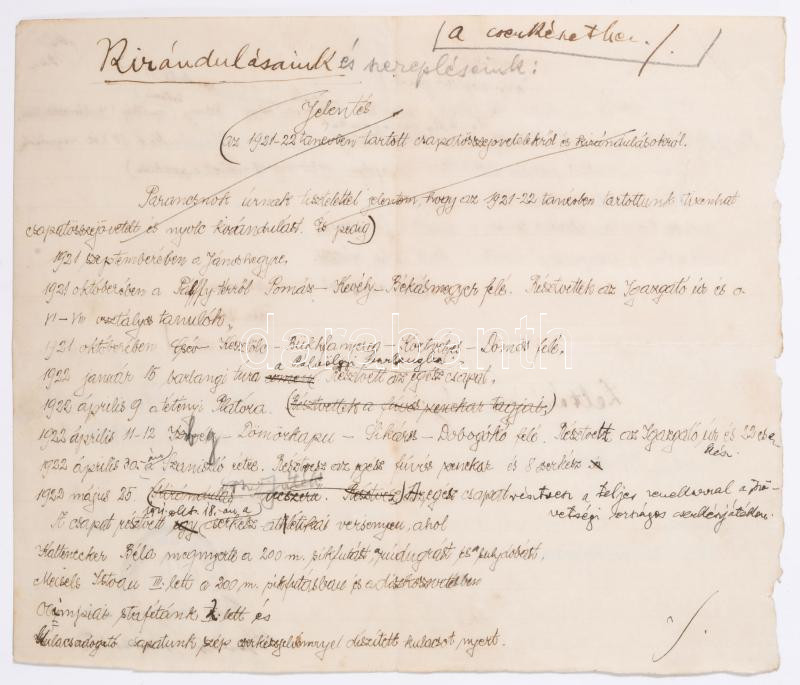 (a cserkészetben.)
Kirándulásaink és szerepléseink:
Jelentés
(az 1921-22 tanévben tartott csapatösszejövetelekről és kirándulásokról.
Parancsnok úrnak tisztelettel jelentem, hogy az 1921-22 tanévben tartottunk tizenhat
csapatösszejövetelt és nyolc kirándulást. És pedig)
1921 szeptemberében a Jánoshegyre.
1921 októberében a Pálffy-térről Pomáz-Kevély-Békásmegyer felé. Résztvettek az Igazgató úr és a
VI-VIII osztályos tanulók.
1921 októberében Kesztölc - - Dömös felé.
a Pálvölgyi barlangba
1922 január 15 barlangi túra Résztvett az egész csapat.
1922 április 9 a tétényi Platóra. (Résztvettek a füvész penekar tagjai.)
1922 április 11-12 - Dömörkapu - Sikáros - Dobogókő felé. Résztvett az Igazgató úr és 22 cser-
kész.
1922 április 30-án a Szaniszló rétre. Résztvesz az egész füvész penekar és 8 cserkész
1922 május 25. (Kirándulás vészera. Résztvesz) Az egész csapat résztvesz a teljes zenekarral a Szö-
vetségi országos cserkészjátékokon.
A csapat résztvett egy cserkész atlétikai versenyen, ahol
Kaltenecker Béla megnyerte a 200 m. síkfutást, rúdugrást és súlydobást,
Meisels István III. lett a 200 m. síkfutásban és a diszkoszvetésben
Olimpiai stafétánk 2. lett és
Kulacsadogató csapatunk szép cserkészjelvénnyel díszített kulacsot nyert.
darabanth